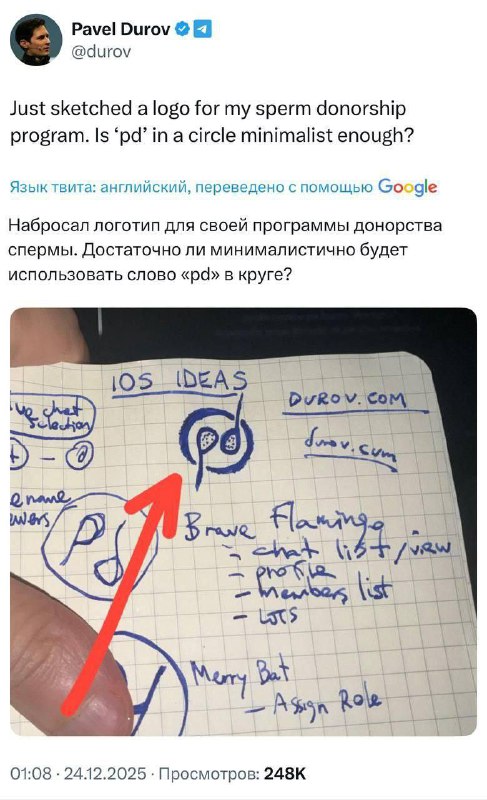 Pavel Durov
@durov
Just sketched a logo for my sperm donorship
program. Is ‘pd’ in a circle minimalist enough?
Язык твита: английский, переведено с помощью Google
Набросал логотип для своей программы донорства
спермы. Достаточно ли минималистично будет
использовать слово «pd» в круге?
IOS IDEAS
pd
DUROV.COM
durov.cum
chat
selection
ename
Pd
Brave Flamingo
– chat list/view
– profile
– members list
Merry Bat
– Assign Role
01:08 · 24.12.2025 · Просмотров: 248K